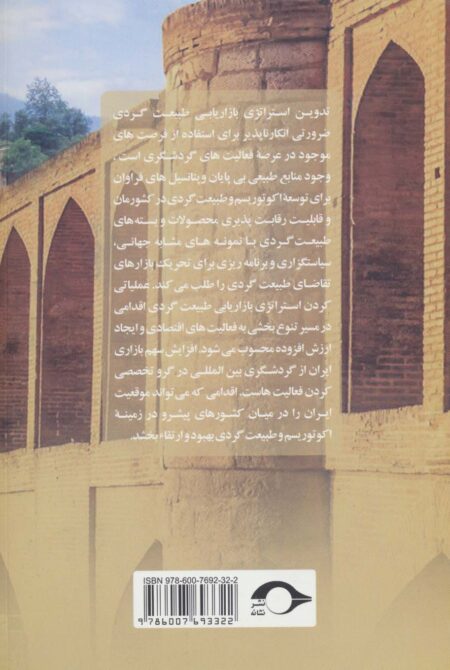 تدوین استراتژی بازاریابی طبیعت گردی
ضرورتی انکارناپذیر برای استفاده از فرصت های
موجود در عرصهٔ فعالیت های گردشگری است،
وجود منابع طبیعی بی پایان وپتانسیل های فراوان
برای توسعهٔ اکوتوریسم و طبیعت گردی در کشورمان
و قابلیت رقابت پذیری محصولات و بسته های
طبیعت گردی با نمونه های مشابه جهانی،
سیاستگزاری و برنامه ریزی برای تحریک بازارهای
تقاضای طبیعت گردی را طلب می کند. عملیاتی
کردن استراتژی بازاریابی طبیعت گردی اقدامی
در مسیر تنوع بخشی به فعالیت های اقتصادی و ایجاد
ارزش افزوده محسوب می شود. افزایش سهم بازاری
ایران از گردشگری بین المللی در گرو تخصصی
کردن فعالیت هاست. اقدامی که می تواند موقعیت
ایران را در میان کشورهای پیشرو در زمینهٔ
اکوتوریسم و طبیعت گردی بهبود و ارتقاء بخشد.
ISBN 978-600-7692-32-2
9 786007 693322
نشر
نشانه